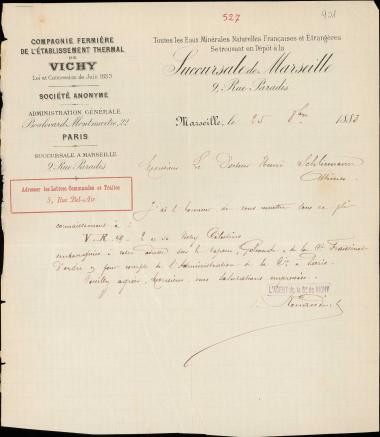 527
COMPAGNIE FERMIÈRE
DE L'ÉTABLISSEMENT THERMAL
DE
VICHY
Loi et Concession de Juin 1853
SOCIÉTÉ ANONYME
ADMINISTRATION GÉNÉRALE
Boulevard Montmartre, 22
PARIS
SUCCURSALE A MARSEILLE
9, Rue Paradis
Adresser les Lettres Commandes et Traites
3, Rue Bel-Air
Toutes les Eaux Minérales Naturelles Françaises et Etrangères
Se trouvent en Dépôt à la
Succursale de Marseille
9, Rue Paradis
Marseille, le 25 8bre 1883
Monsieur Le Docteur Henri Schliemann
Athènes
J'ai l'honneur de vous remettre sous ce pli
connaissement à :
V.R. 2 Vichy Célestins
à votre adresse sous le vapeur, de la Cie Fraissinet
D'ordre pour compte de l'Administration de la Cie à Paris.
Veuillez agréer, Monsieur, mes salutations empressées.
L'AGENT de la Cie de VICHY